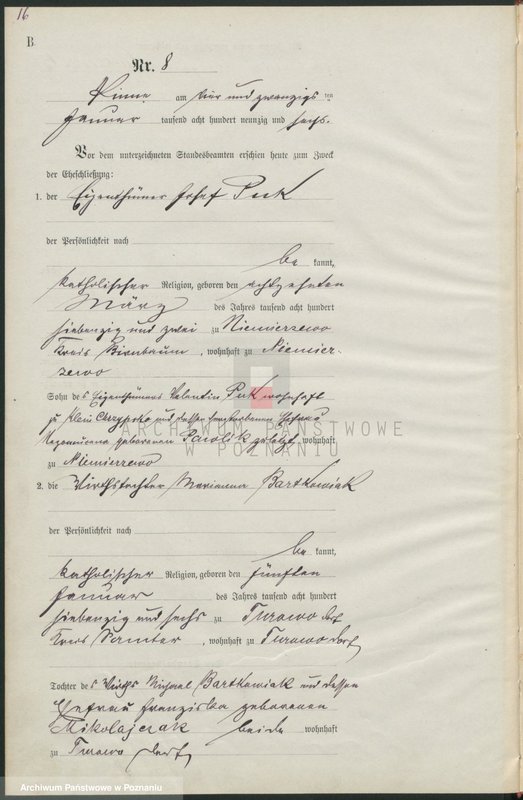 16
B.
Nr. 8
Pinne am vier und zwanzigsten
Januar tausend acht hundert neunzig und sechs.
Vor dem unterzeichneten Standesbeamten erschien heute zum Zweck
der Eheschließung:
1. der Eigenthümer Josef Puk
der Persönlichkeit nach
be kannt,
katholischer Religion, geboren den achtzehnten
März des Jahres tausend acht hundert
siebenzig und zwei zu Niemierzewo
Kreis Birnbaum, wohnhaft zu Niemier-
zewo
Sohn des Eigenthümers Valentin Puk wohnhaft
zu Klein Chrzypsko und dessen verstorbenen Ehefrau
Nepomucena geborenen Pawolik zuletzt wohnhaft
zu Niemierzewo
2. die Wirthstochter Marianna Bartkowiak
der Persönlichkeit nach
be kannt,
katholischer Religion, geboren den fünften
Januar des Jahres tausend acht hundert
siebenzig und sechs zu Turowo Dorf
Kreis Samter, wohnhaft zu Turowo Dorf
Tochter des Wirths Michael Bartkowiak und dessen
Ehefrau Franziska geborenen
Mikolajczak beide wohnhaft
zu Turowo Dorf
ARCHIWUM PAŃSTWOWE
W POZNANIU
Archiwum Państwowe w Poznaniu